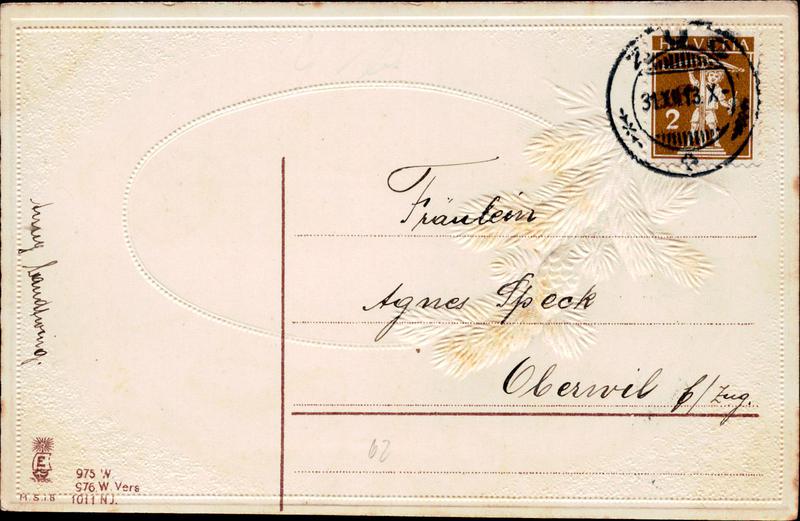 HELVETIA
ZUG
31.XII.13.X-
2
Fräulein
Agnes Speck
Oberwil b/Zug.
Landtwing.
62
E
M.S.i.B
975 W
976 W. Vers
1011 N.J.